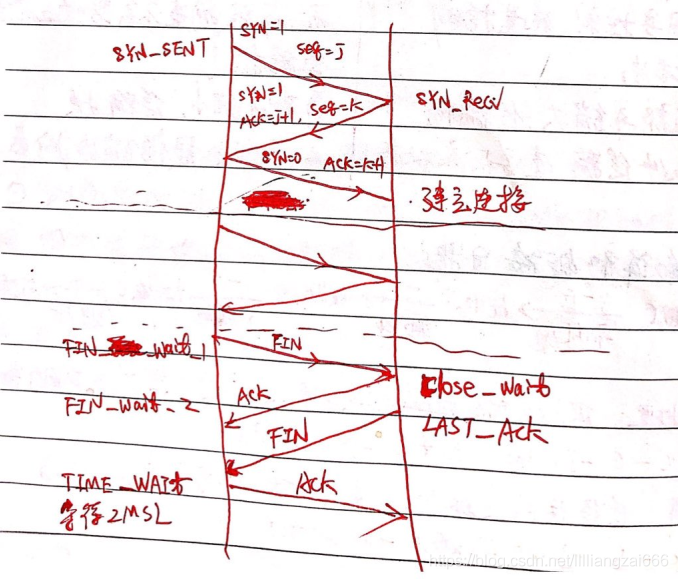 SYN=1
SYN_SENT
seq=J
SYN=1
SYN_Recv
Ack=J+1, seq=K
SYN=0 Ack=K+1
建立连接
FIN_Wait_1
FIN
Close_Wait
Ack
FIN_Wait_2
LAST_Ack
FIN
TIME_WAIt
Ack
等待2MSL
https://blog.csdn.net/lllliangzai666